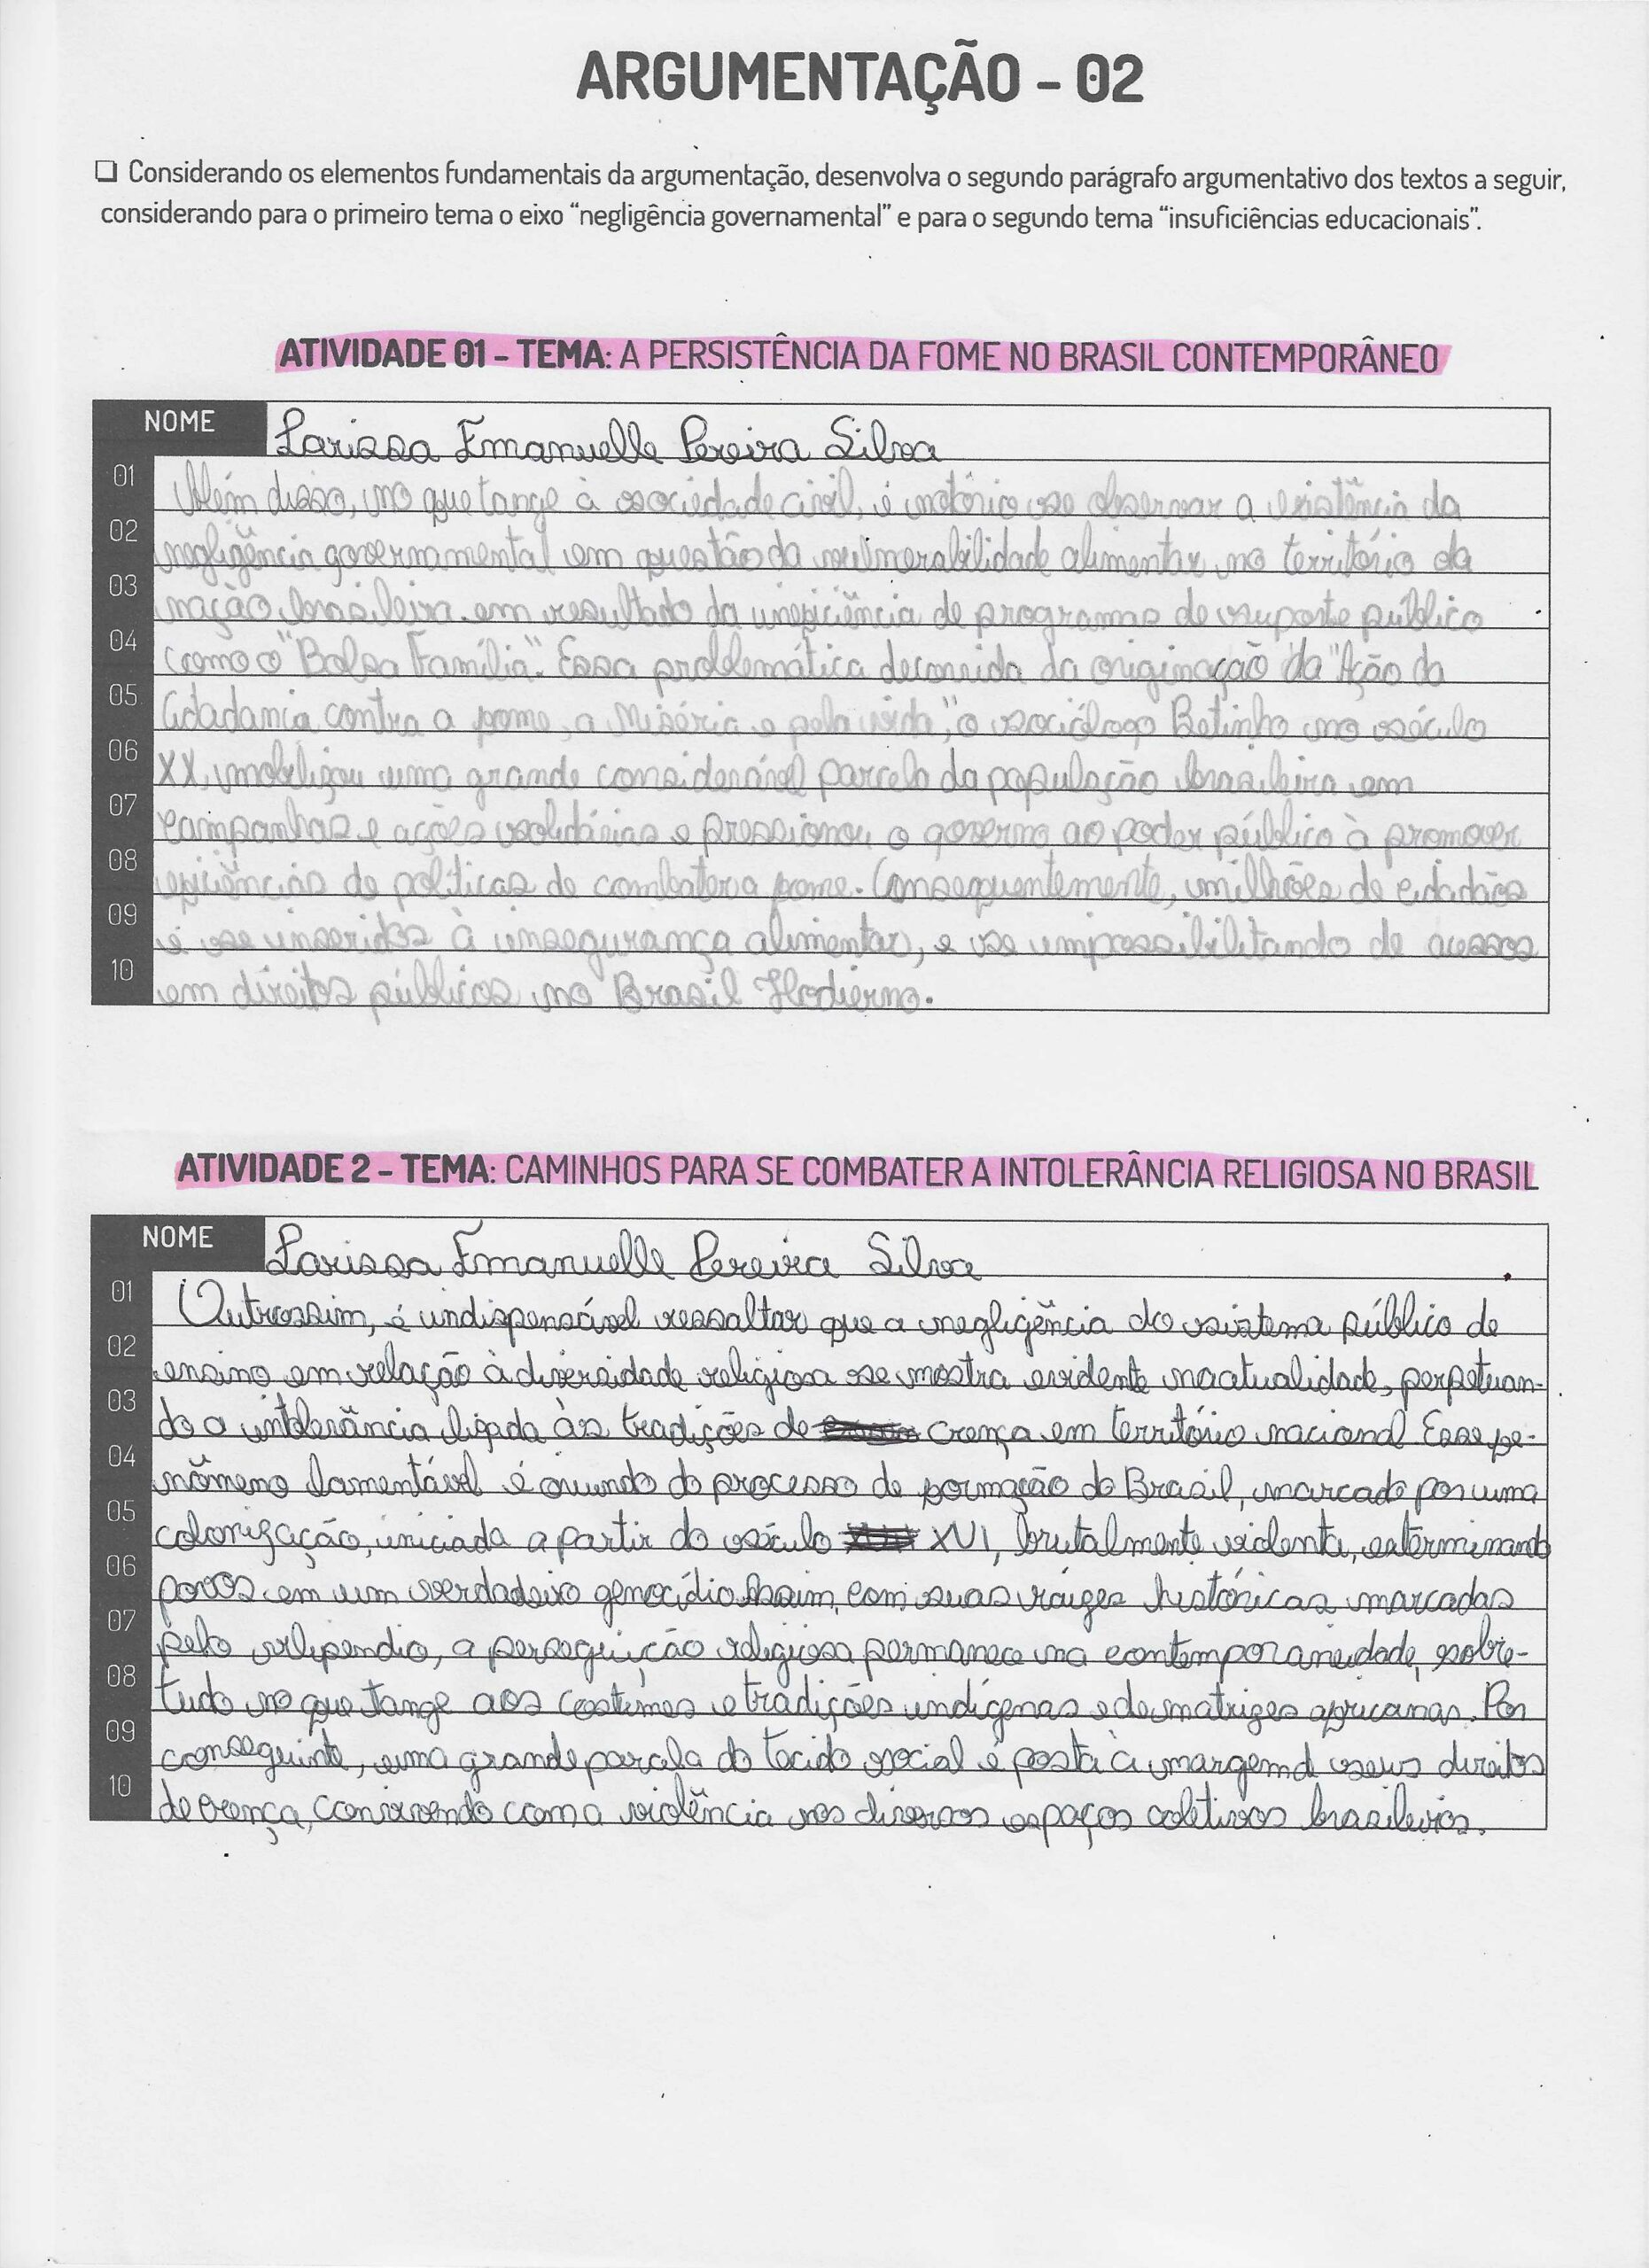 ARGUMENTAÇÃO - 02
❑ Considerando os elementos fundamentais da argumentação, desenvolva o segundo parágrafo argumentativo dos textos a seguir,
considerando para o primeiro tema o eixo “negligência governamental” e para o segundo tema “insuficiências educacionais”.
ATIVIDADE 01 – TEMA: A PERSISTÊNCIA DA FOME NO BRASIL CONTEMPORÂNEO
NOME Larissa Emanuelle Pereira Silva
01 Além disso, no que tange à sociedade civil, é notório se observar a existência da
02 negligência governamental em questão da vulnerabilidade alimentar no território da
03 nação brasileira, em resultado da ineficiência de programas de suporte público
04 como o "Bolsa Família". Essa problemática decorrida da originação da "Ação da
05 Cidadania contra a fome, a Miséria e pela vida", o sociólogo Betinho no século
06 XX, mobilizou uma grande considerável parcela da população brasileira em
07 campanhas e ações solidárias e pressionou o governo ao poder público à promover
08 eficiências de políticas de combater a fome. Consequentemente, milhões de cidadãos
09 é se inseridos à insegurança alimentar, e se impossibilitando de acessos
10 em direitos públicos no Brasil Hodierno.
ATIVIDADE 2 – TEMA: CAMINHOS PARA SE COMBATER A INTOLERÂNCIA RELIGIOSA NO BRASIL
NOME Larissa Emanuelle Pereira Silva
01 Outrossim, é indispensável ressaltar que a negligência do sistema público de
02 ensino em relação à diversidade religiosa se mostra evidente na atualidade, perpetuan-
03 do a intolerância ligada às tradições de crença em território nacional Esse fe-
04 nômeno lamentável é oriundo do processo de formação do Brasil, marcado por uma
05 colonização, iniciada a partir do século XVI, brutalmente violenta, exterminando
06 povos em um verdadeiro genocídio. Assim, com suas raízes históricas marcadas
07 pelo vilipendio, a perseguição religiosa permanece na contemporaneidade, sobre-
08 tudo no que tange aos costumes e tradições indígenas e de matrizes africanas. Por
09 conseguinte, uma grande parcela do tecido social é posta à margem d seus direitos
10 de crença, convivendo com a violência nos diversos espaços coletivos brasileiros.